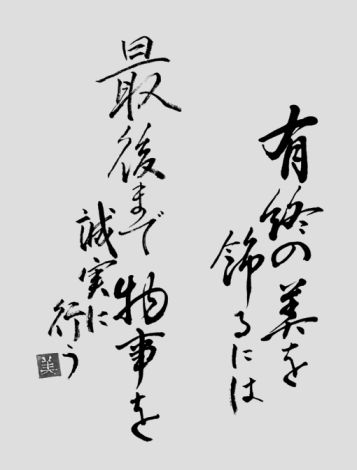 有終の美を
飾るには
最後まで物事を
誠実に
行う
美